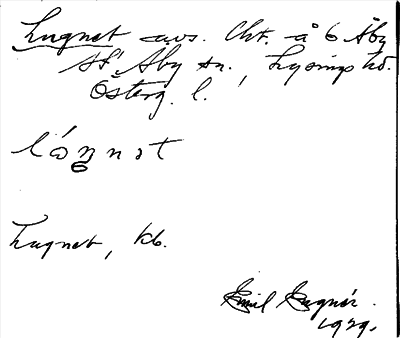 Lugnet avs. Cht. å 6 Åby
St. Åby sn., Lysings hd.
Österg. l.
Lugnet, kb.
Emil Eugnér.
1929.